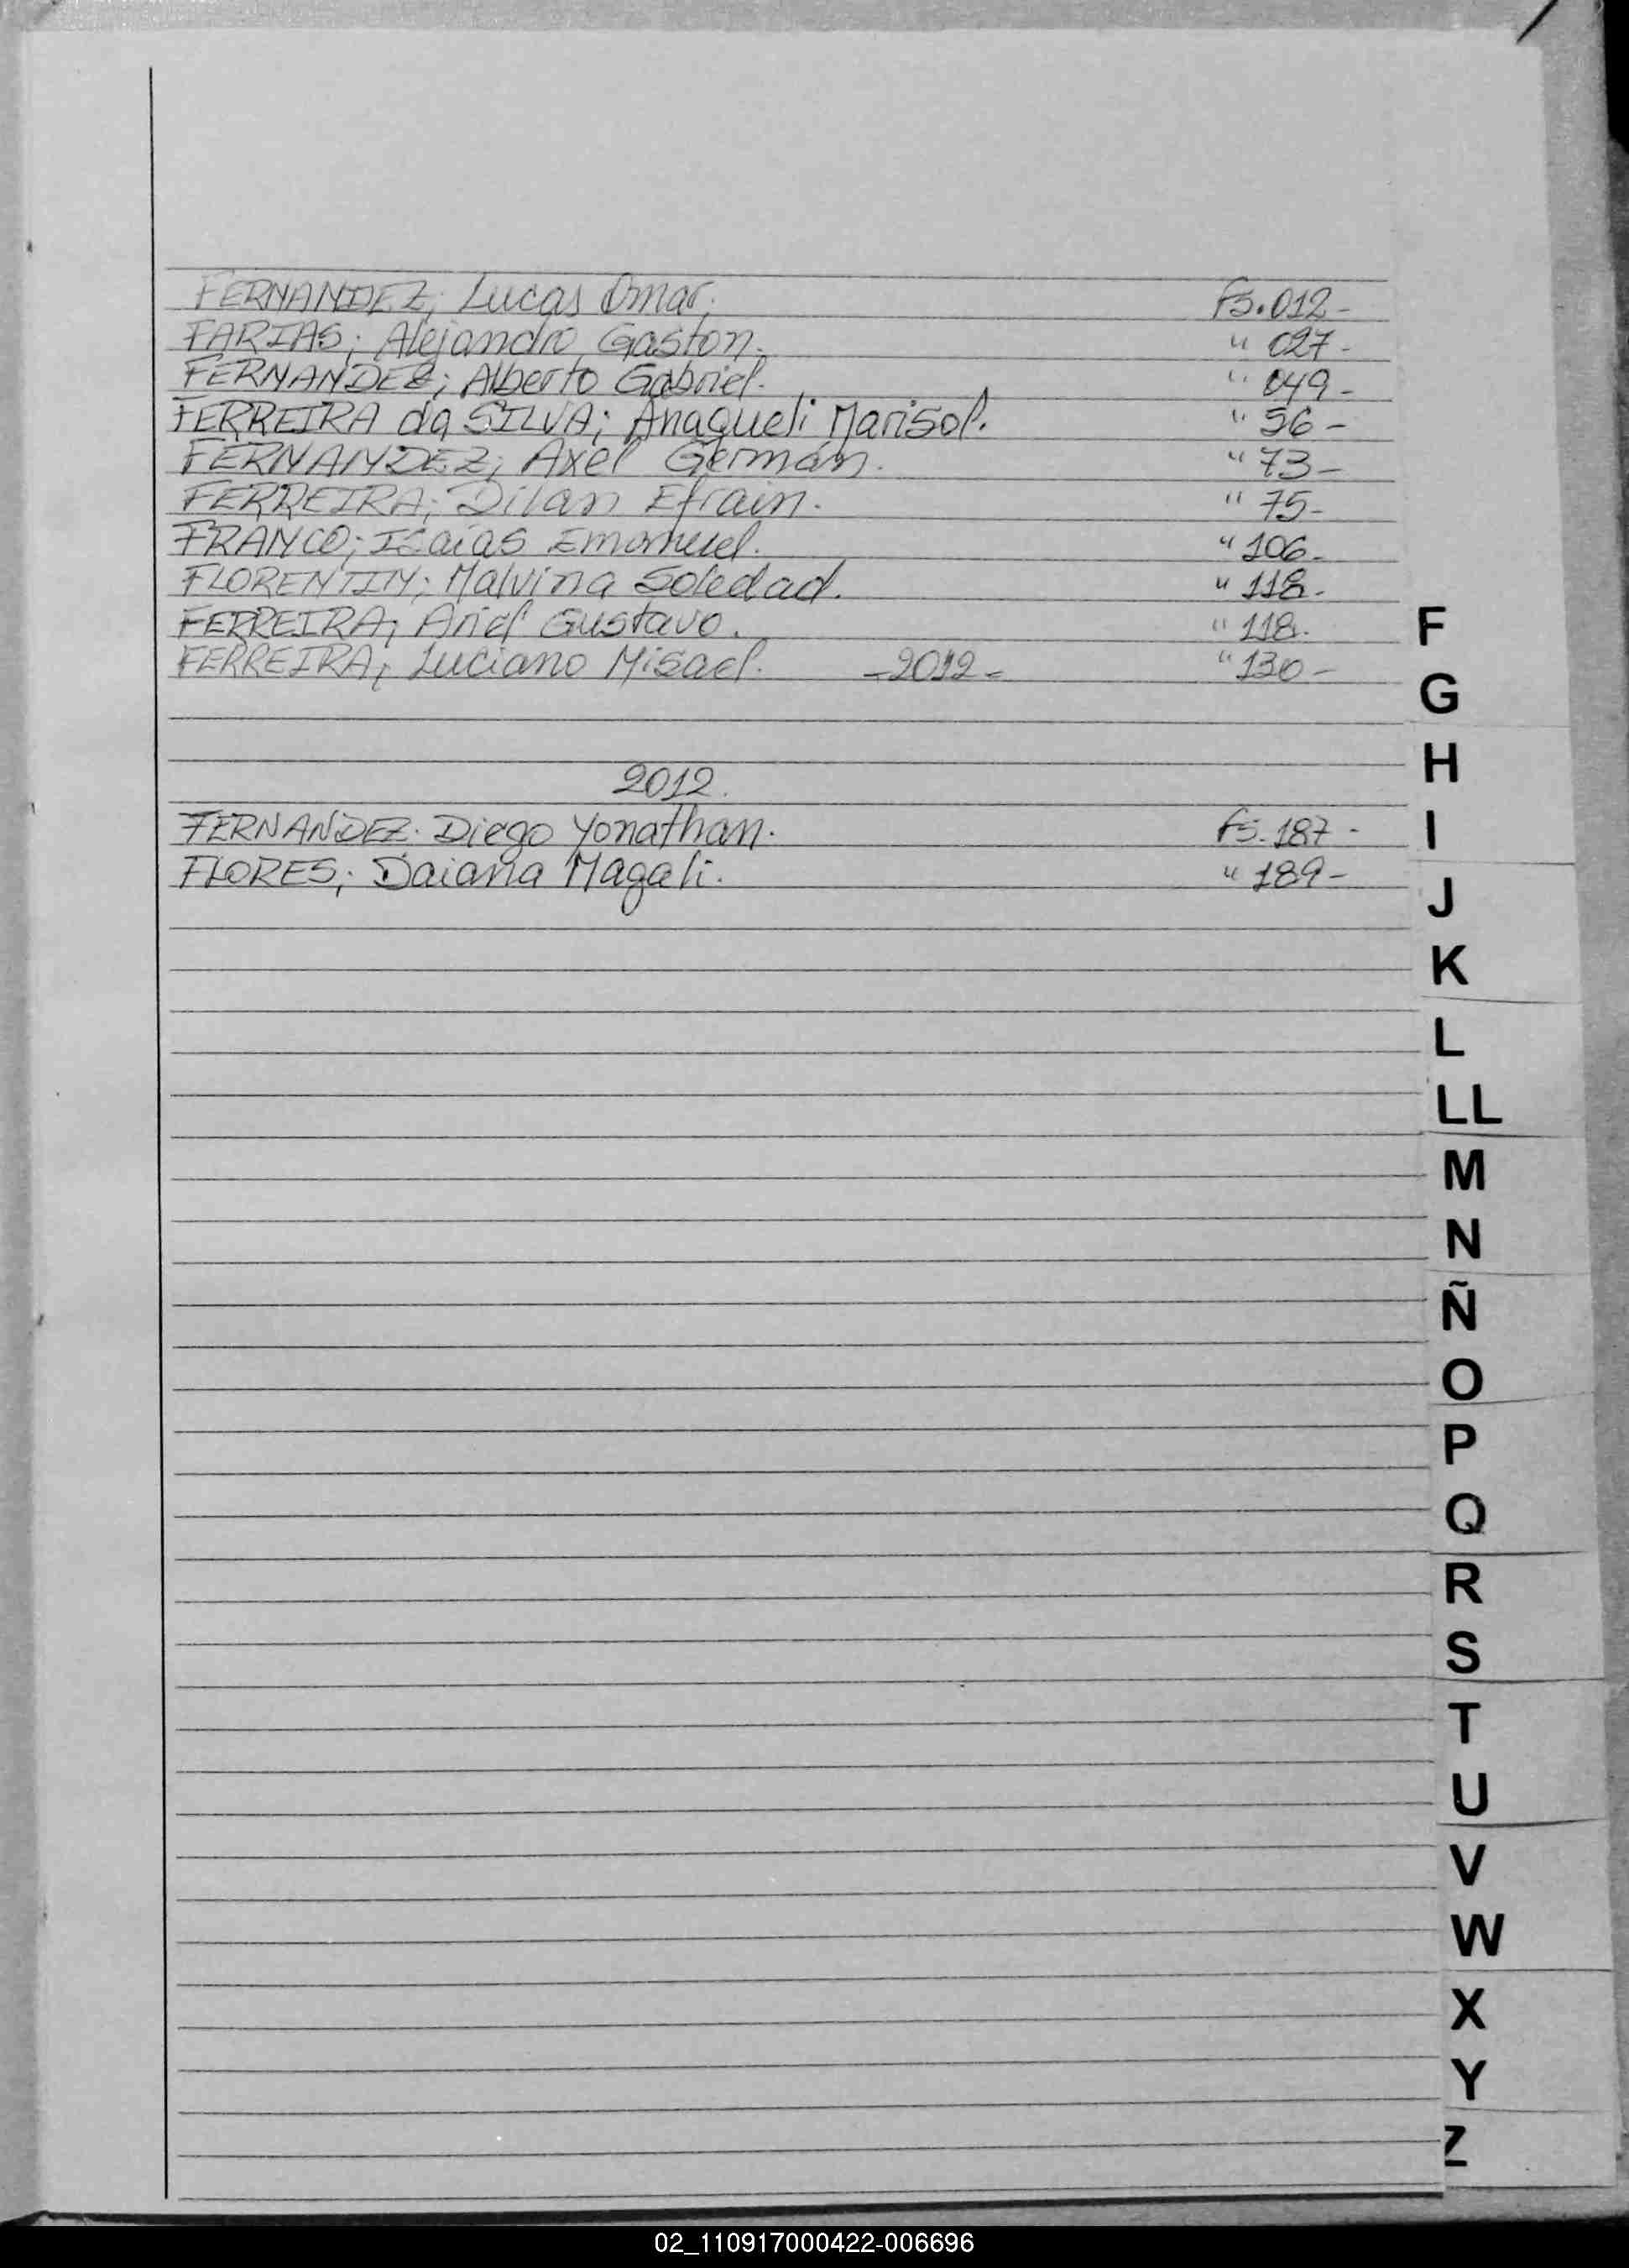 FERNANDEZ; Lucas Omar. Fs.012-
FARIAS; Alejandro Gaston. " 027-
FERNANDEZ; Alberto Gabriel. " 049-
FERREIRA da SILVA; Anaqueli Marisol. " 56-
FERNANDEZ; Axel Germán. " 73-
FERREIRA; Dilan Efrain. " 75-
FRANCO; Isaías Emanuel. " 106-
FLORENTIN; Malvina Soledad. " 118-
FERREIRA; Ariel Gustavo. " 118.
FERREIRA; Luciano Misael. -2012- " 130-
2012.
FERNANDEZ. Diego Yonathan. Fs. 187-
FLORES; Daiana Magali. " 189-
F
G
H
I
J
K
L
LL
M
N
Ñ
O
P
Q
R
S
T
U
V
W
X
Y
Z
02_110917000422-006696